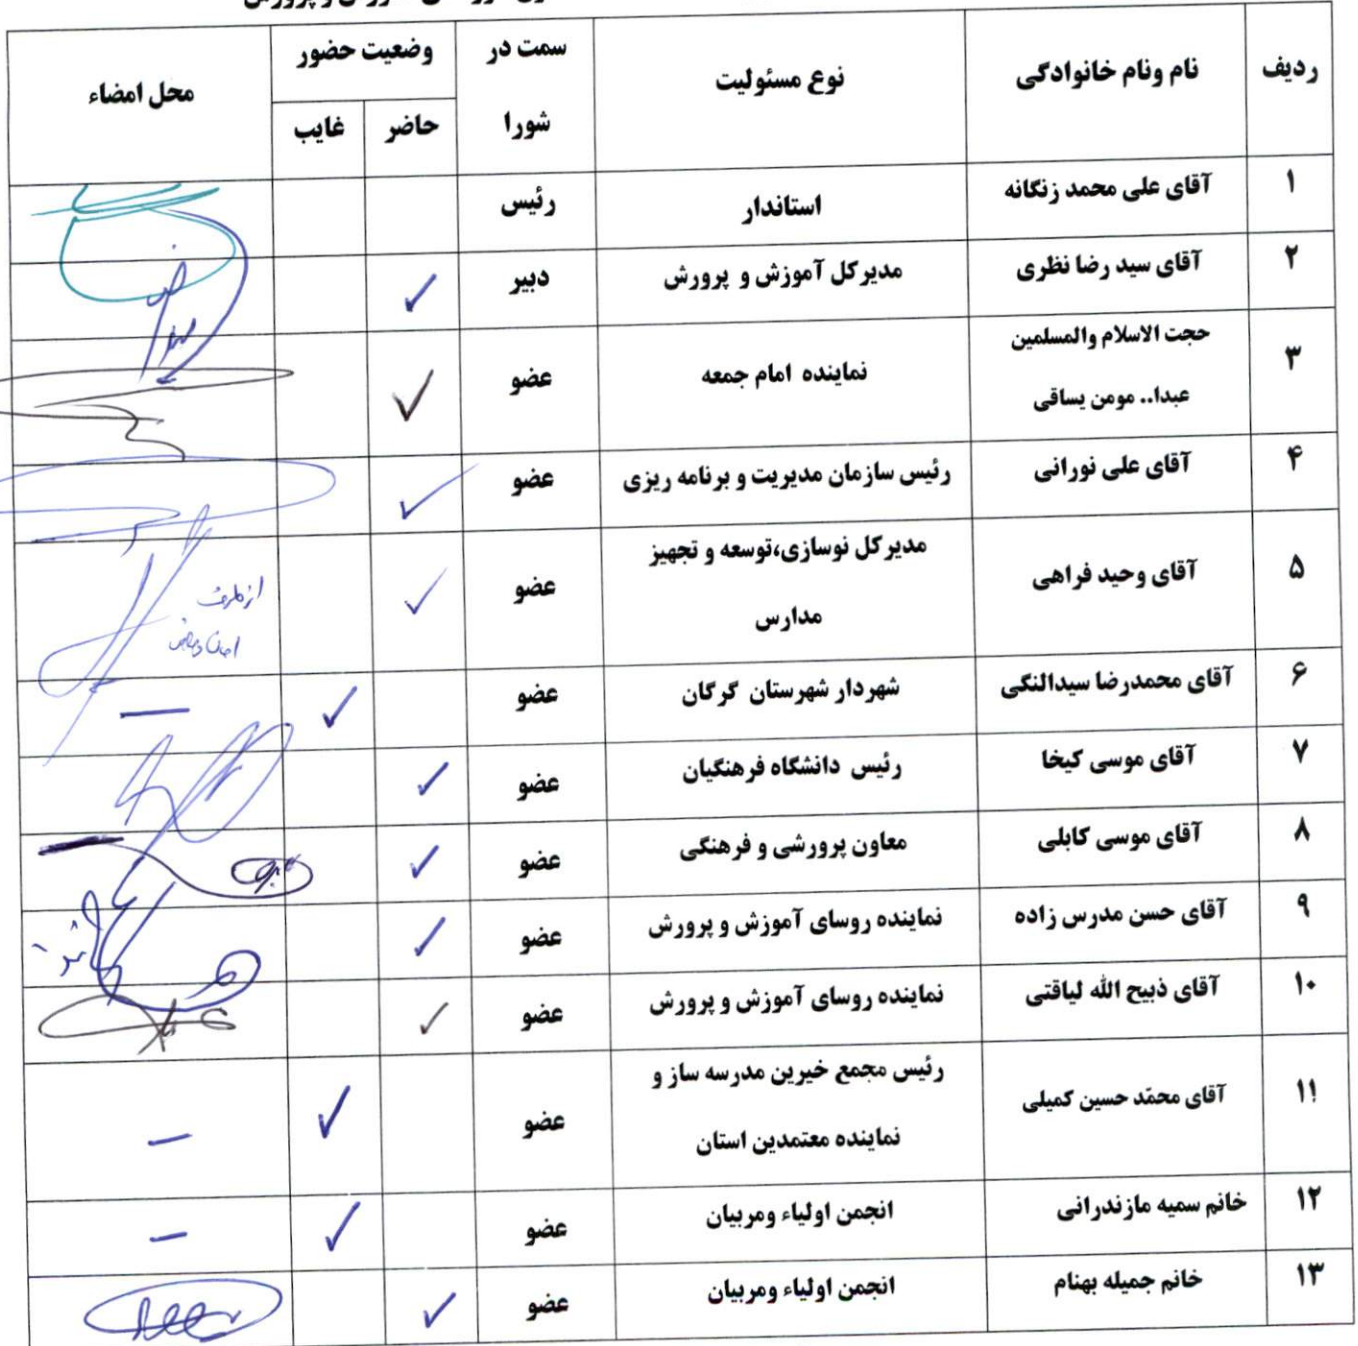 ردیف نام ونام خانوادگی نوع مسئولیت سمت در شورا وضعیت حضور محل امضاء
حاضر غایب
۱ آقای علی محمد زنگانه استاندار رئیس
۲ آقای سید رضا نظری مدیرکل آموزش و پرورش دبیر ✓
۳ حجت الاسلام والمسلمین
عبدا.. مومن یساقی نماینده امام جمعه عضو ✓
۴ آقای علی نورانی رئیس سازمان مدیریت و برنامه ریزی عضو ✓
۵ آقای وحید فراهی مدیرکل نوسازی،توسعه و تجهیز
مدارس عضو ✓ از طرف
۶ آقای محمدرضا سیدالنگی شهردار شهرستان گرگان عضو ✓ —
۷ آقای موسی کیخا رئیس دانشگاه فرهنگیان عضو ✓
۸ آقای موسی کابلی معاون پرورشی و فرهنگی عضو ✓
۹ آقای حسن مدرس زاده نماینده روسای آموزش و پرورش عضو ✓
۱۰ آقای ذبیح الله لیاقتی نماینده روسای آموزش و پرورش عضو ✓
۱۱ آقای محمّد حسین کمیلی رئیس مجمع خیرین مدرسه ساز و
نماینده معتمدین استان عضو ✓ —
۱۲ خانم سمیه مازندرانی انجمن اولیاء ومربیان عضو ✓ —
۱۳ خانم جمیله بهنام انجمن اولیاء ومربیان عضو ✓